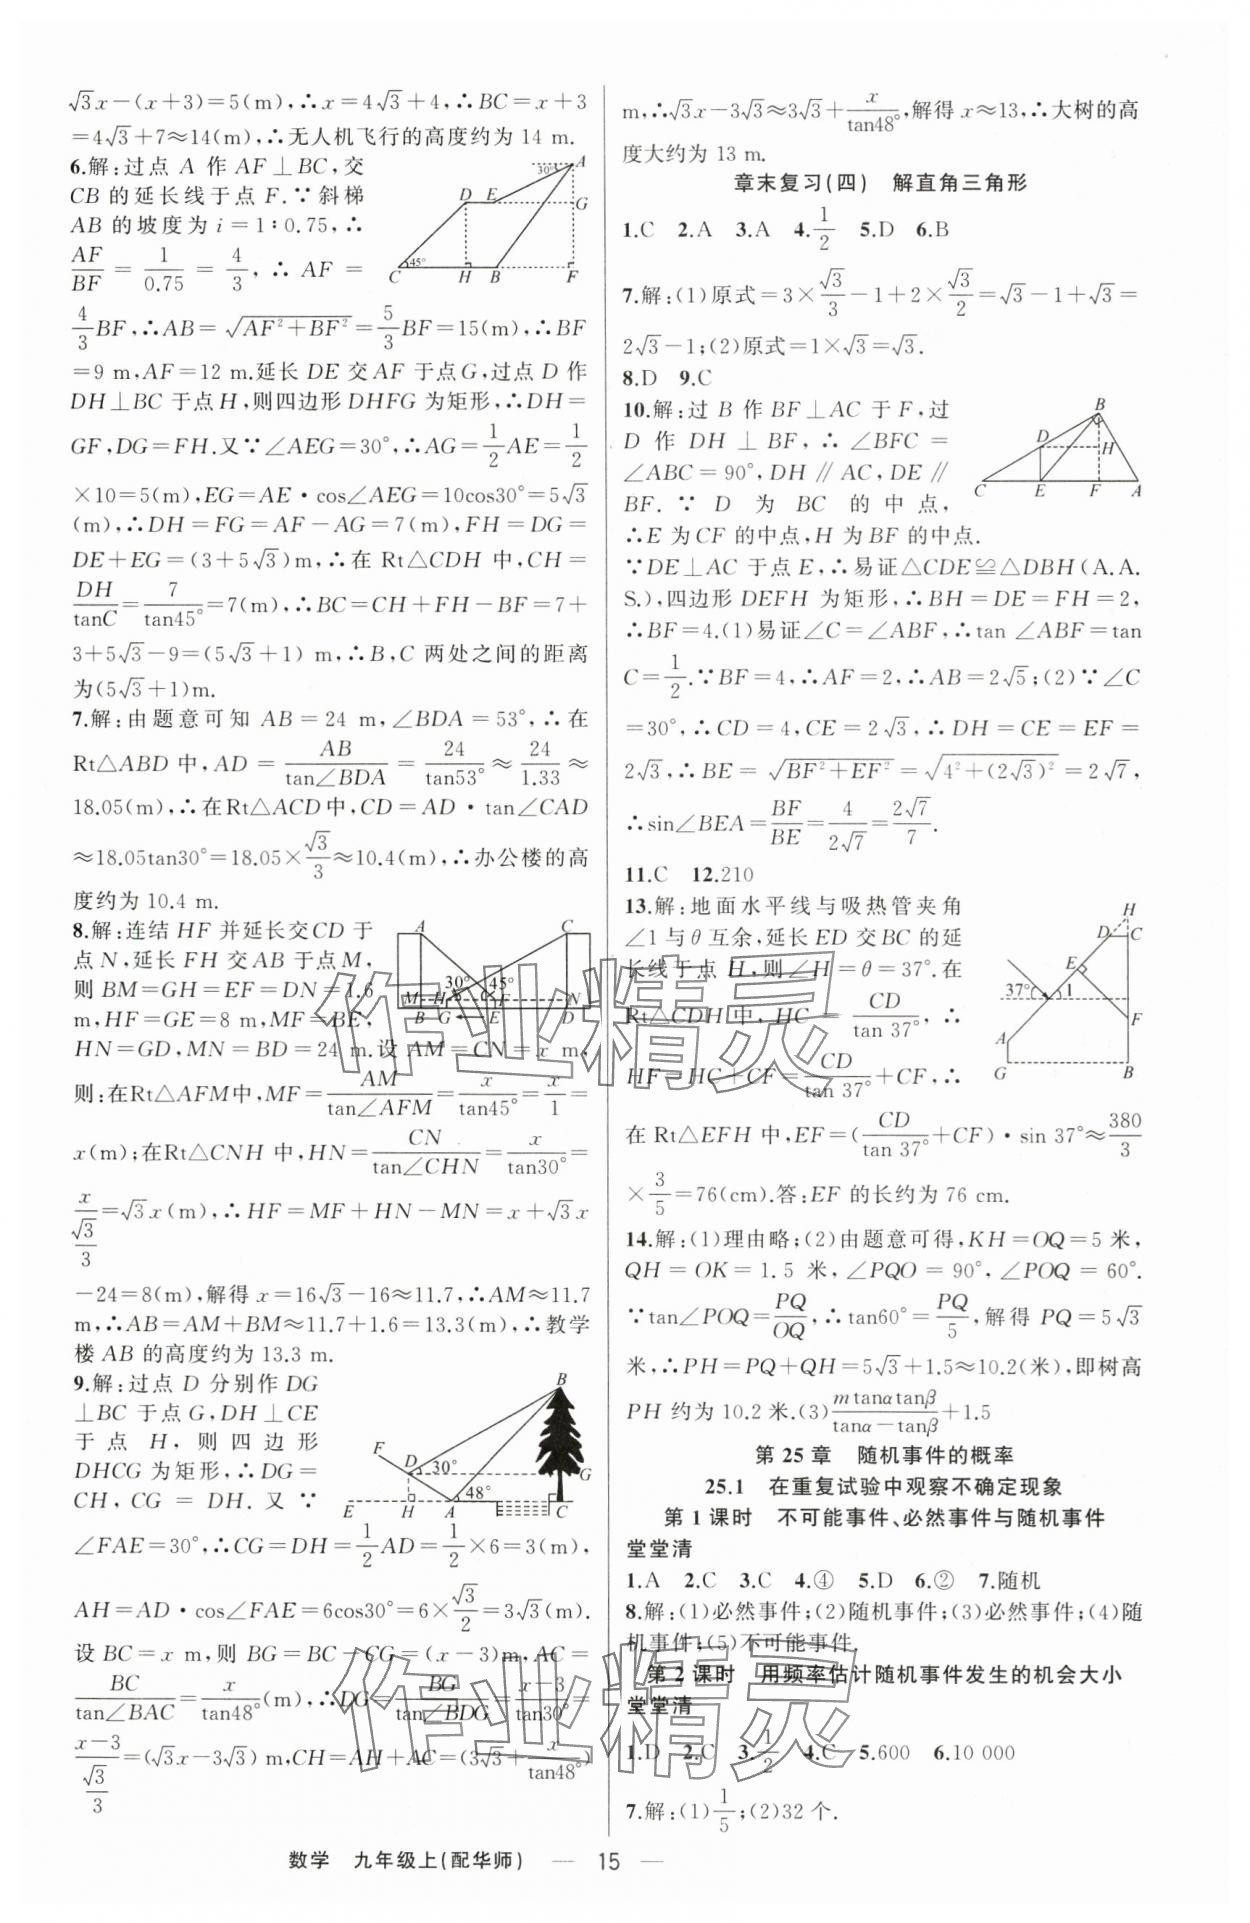 √3x−(x+3)=5(m),∴x=4√3+4,∴BC=x+3
=4√3+7≈14(m),∴无人机飞行的高度约为 14 m.
6.解:过点 A 作 AF⊥BC,交
CB 的延长线于点 F.∵斜梯
AB 的坡度为 i=1∶0.75,∴
AF/BF = 1/0.75 = 4/3, ∴ AF =
4/3BF,∴AB=√(AF²+BF²)=5/3BF=15(m),∴BF
=9 m,AF=12 m.延长 DE 交 AF 于点G,过点 D 作
DH⊥BC 于点 H,则四边形 DHFG 为矩形,∴DH=
GF,DG=FH.又∵∠AEG=30°,∴AG=1/2AE=1/2
×10=5(m),EG=AE·cos∠AEG=10cos30°=5√3
(m),∴DH=FG=AF−AG=7(m),FH=DG=
DE+EG=(3+5√3)m,∴在 Rt△CDH 中,CH=
DH/tanC=7/tan45°=7(m),∴BC=CH+FH−BF=7+
3+5√3−9=(5√3+1) m,∴B,C 两处之间的距离
为(5√3+1)m.
7.解:由题意可知 AB=24 m,∠BDA=53°,∴在
Rt△ABD 中,AD = AB/tan∠BDA = 24/tan53° ≈ 24/1.33 ≈
18.05(m),∴在Rt△ACD中,CD=AD·tan∠CAD
≈18.05tan30°=18.05×√3/3≈10.4(m),∴办公楼的高
度约为 10.4 m.
8.解:连结 HF 并延长交CD 于
点 N,延长 FH 交 AB 于点 M,
则 BM=GH=EF=DN=1.6
m,HF=GE=8 m,MF=BE,
HN=GD,MN=BD=24 m.设 AM=CN=x m,
则:在Rt△AFM中,MF=AM/tan∠AFM=x/tan45°=x/1=
x(m);在Rt△CNH 中,HN=CN/tan∠CHN=x/tan30°=
x/(√3/3)=√3x(m),∴HF=MF+HN−MN=x+√3x
−24=8(m),解得 x=16√3−16≈11.7,∴AM≈11.7
m,∴AB=AM+BM≈11.7+1.6=13.3(m),∴教学
楼 AB 的高度约为 13.3 m.
9.解:过点 D 分别作 DG
⊥BC 于点 G,DH⊥CE
于点 H,则四边形
DHCG 为矩形,∴DG=
CH,CG=DH.又∵
∠FAE=30°,∴CG=DH=1/2AD=1/2×6=3(m),
AH=AD·cos∠FAE=6cos30°=6×√3/2=3√3(m).
设 BC=x m,则 BG=BC−CG=(x−3)m,AC=
BC/tan∠BAC=x/tan48°(m),∴DG=BG/tan∠BDG=(x−3)/tan30°=
(x−3)/(√3/3)=(√3x−3√3) m,CH=AH+AC=(3√3+x/tan48°)
m,∴√3x−3√3≈3√3+x/tan48°,解得 x≈13,∴大树的高
度大约为 13 m.
章末复习(四) 解直角三角形
1.C 2.A 3.A 4.1/2 5.D 6.B
7.解:(1)原式=3×√3/3−1+2×√3/2=√3−1+√3=
2√3−1;(2)原式=1×√3=√3.
8.D 9.C
10.解:过 B 作 BF⊥AC 于 F,过
D 作 DH⊥BF,∴∠BFC=
∠ABC=90°,DH∥AC,DE∥
BF. ∵ D 为 BC 的中点,
∴E 为 CF 的中点,H 为 BF 的中点.
∵DE⊥AC 于点 E,∴易证△CDE≌△DBH(A.A.
S.),四边形 DEFH 为矩形,∴BH=DE=FH=2,
∴BF=4.(1)易证∠C=∠ABF,∴tan ∠ABF=tan
C=1/2.∵BF=4,∴AF=2,∴AB=2√5;(2)∵∠C
=30°,∴CD=4,CE=2√3,∴DH=CE=EF=
2√3,∴BE=√(BF²+EF²)=√(4²+(2√3)²)=2√7,
∴sin∠BEA=BF/BE=4/(2√7)=2√7/7.
11.C 12.210
13.解:地面水平线与吸热管夹角
∠1与θ互余,延长ED 交BC 的延
长线于点 H,则∠H=θ=37°.在
Rt△CDH 中,HC=CD/tan 37°,∴
HF=HC+CF=CD/tan 37°+CF,∴
在 Rt△EFH 中,EF=(CD/tan 37°+CF)·sin 37°≈380/3
×3/5=76(cm).答:EF 的长约为 76 cm.
14.解:(1)理由略;(2)由题意可得,KH=OQ=5 米,
QH=OK=1.5 米,∠PQO=90°,∠POQ=60°.
∵tan∠POQ=PQ/OQ,∴tan60°=PQ/5,解得 PQ=5√3
米,∴PH=PQ+QH=5√3+1.5≈10.2(米),即树高
PH 约为 10.2 米.(3)mtanαtanβ/(tanα−tanβ)+1.5
第 25 章 随机事件的概率
25.1 在重复试验中观察不确定现象
第 1 课时 不可能事件、必然事件与随机事件
堂堂清
1.A 2.C 3.C 4.④ 5.D 6.② 7.随机
8.解:(1)必然事件;(2)随机事件;(3)必然事件;(4)随
机事件;(5)不可能事件.
第 2 课时 用频率估计随机事件发生的机会大小
堂堂清
1.D 2.C 3.1/2 4.C 5.600 6.10 000
7.解:(1)1/5;(2)32 个.
数学 九年级上(配华师) — 15 —
作业精灵
作业精灵